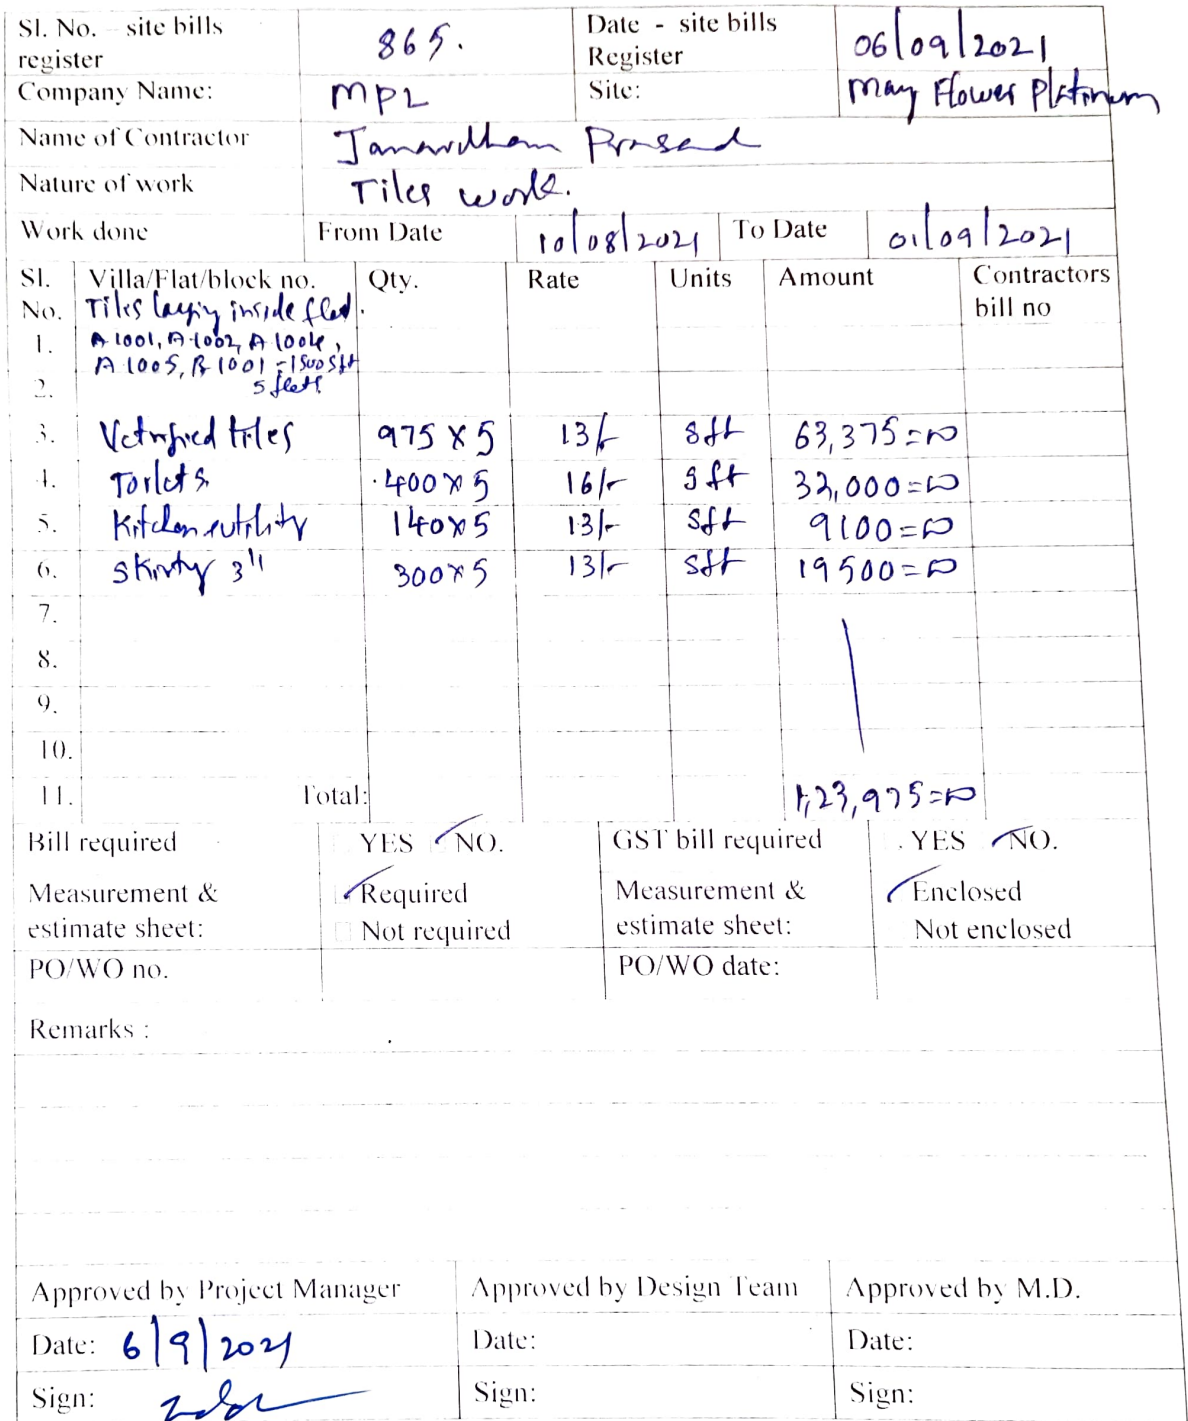 Sl. No. – site bills register 865. Date - site bills Register 06/09/2021
Company Name: MPL Site: May Flower Platinum
Name of Contractor Janardhan Prasad
Nature of work Tiles work.
Work done From Date 10/08/2021 To Date 01/09/2021
Sl. No. Villa/Flat/block no. Qty. Rate Units Amount Contractors bill no
Tiles laying inside flat.
1. A 1001, A-1002, A 1004,
A 1005, B 1001 = 1500 sft
2. 5 flats
3. Vetrified tiles 975 x 5 13/- sft 63,375=00
4. Toilets 400 x 5 16/- sft 32,000=00
5. Kitchen utility 140x5 13/- sft 9100=00
6. Skirty 3" 300x5 13/- sft 19500=00
7.
8.
9.
10.
11. Total: 1,23,975=00
Bill required YES NO. GST bill required YES NO.
Measurement & estimate sheet: Required Measurement & estimate sheet: Enclosed
Not required Not enclosed
PO/WO no. PO/WO date:
Remarks :
Approved by Project Manager Approved by Design Team Approved by M.D.
Date: 6/9/2021 Date: Date:
Sign: Sign: Sign: